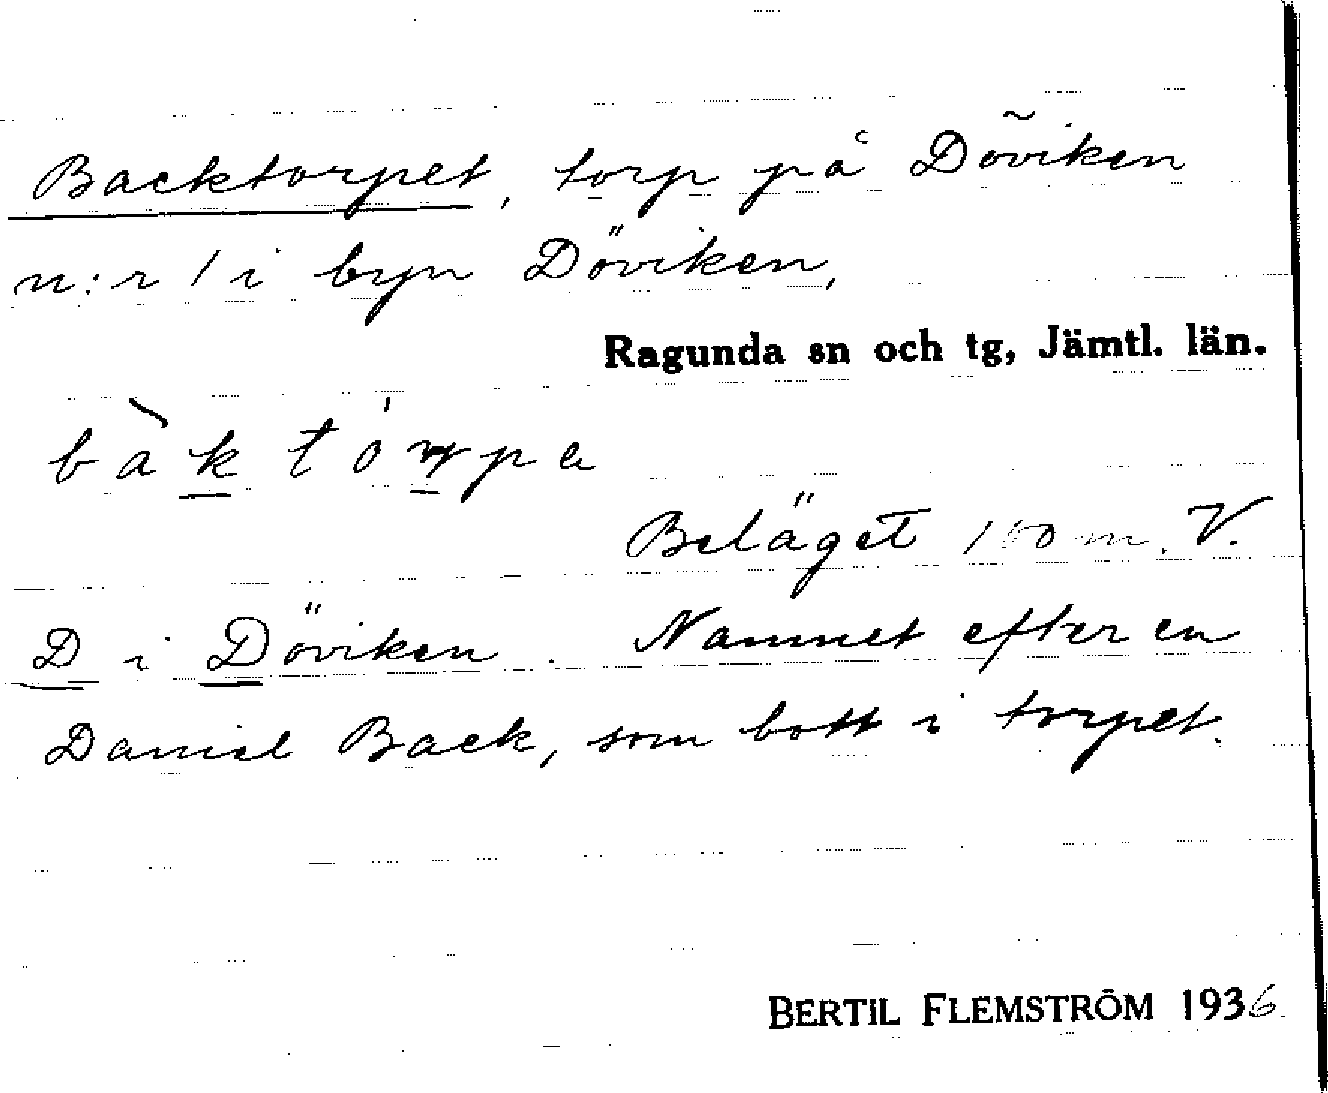 Backtorpet, torp på Döviken
n:r 1 i byn Döviken,
Ragunda sn och tg, Jämtl. län.
bàk tórpa
Beläget 100 m. V.
D i Döviken. Namnet efter en
Daniel Back, som bott i torpet.
BERTIL FLEMSTRÖM 1936